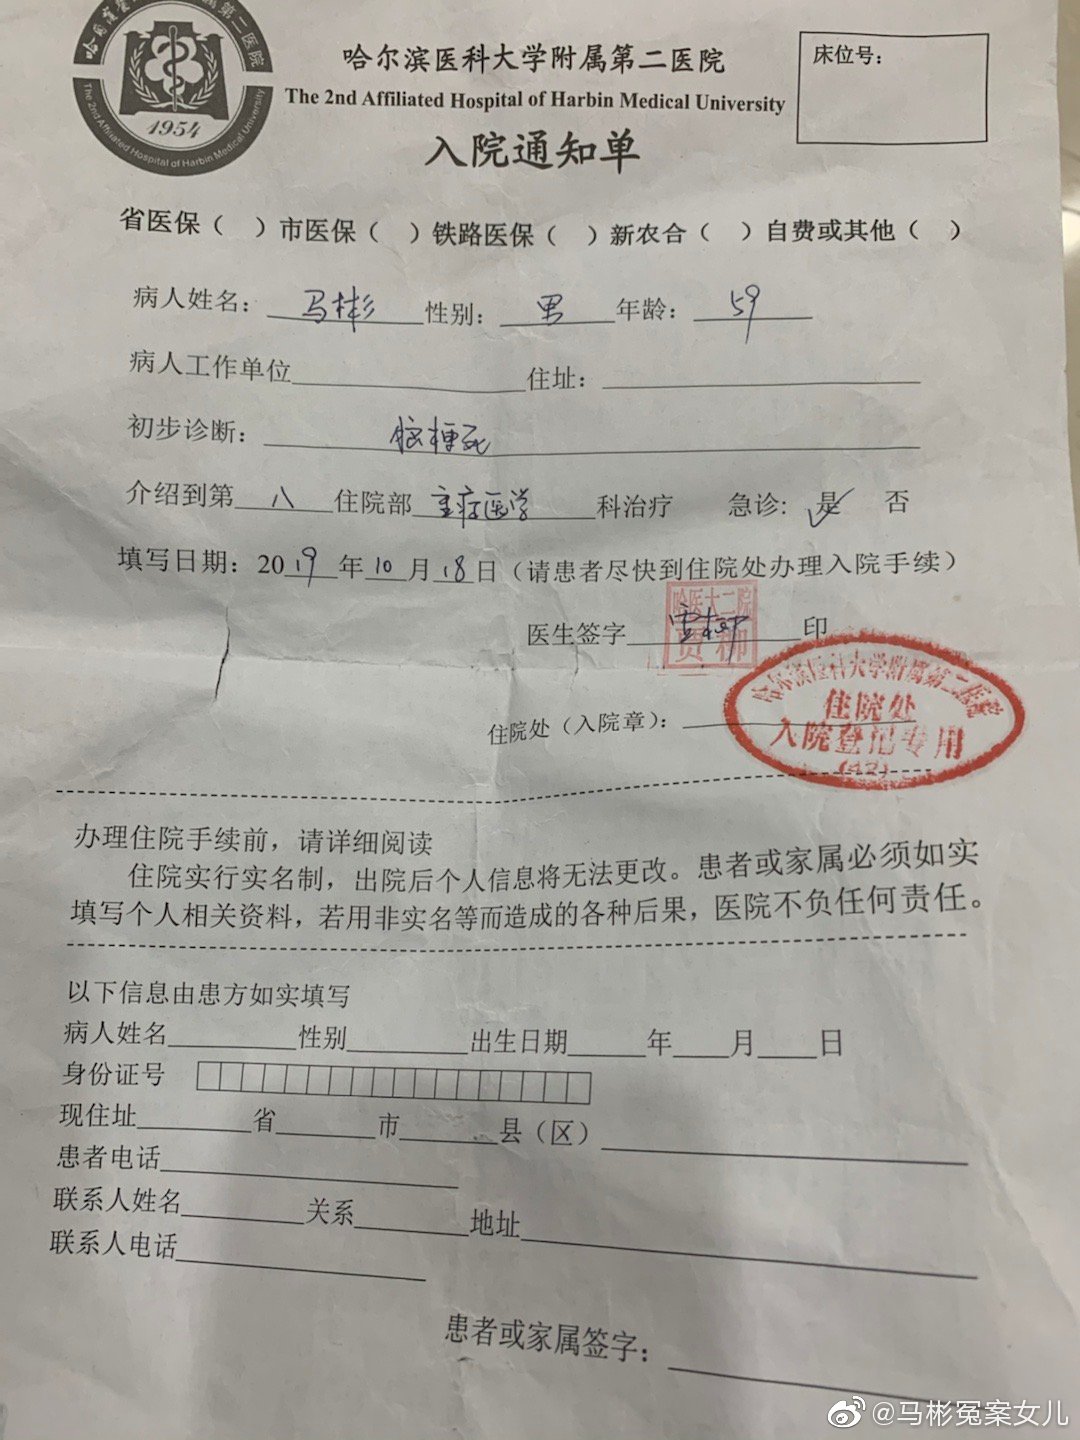 第二医院
The 2nd Affiliated Hospital of Harbin Medical University
1954
哈尔滨医科大学附属第二医院
The 2nd Affiliated Hospital of Harbin Medical University
入院通知单
床位号：
省医保（ ）市医保（ ）铁路医保（ ）新农合（ ）自费或其他（ ）
病人姓名：马彬 性别：男 年龄：59
病人工作单位 住址：
初步诊断：脑梗死
介绍到第八住院部重症医学科治疗 急诊：是✓ 否
填写日期：2019年10月18日（请患者尽快到住院处办理入院手续）
哈医大二院
医生签字 贾柳 印
住院处（入院章）：
哈尔滨医科大学附属第二医院
住院处
入院登记专用
办理住院手续前，请详细阅读
住院实行实名制，出院后个人信息将无法更改。患者或家属必须如实
填写个人相关资料，若用非实名等而造成的各种后果，医院不负任何责任。
以下信息由患方如实填写
病人姓名 性别 出生日期 年 月 日
身份证号
现住址 省 市 县（区）
患者电话
联系人姓名 关系 地址
联系人电话
患者或家属签字：
@马彬冤案女儿